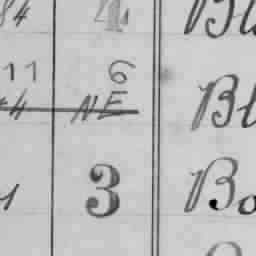 84 4 Bl
11 6
44 NE Bl
1 3 Bo